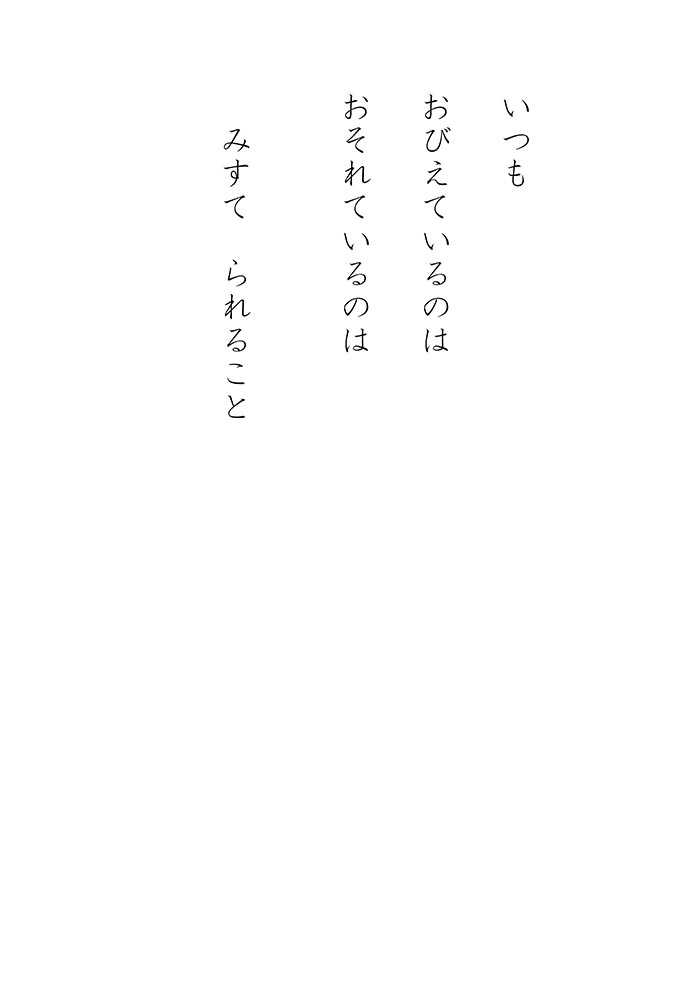 いつも
おびえているのは
おそれているのは
みすて　られること